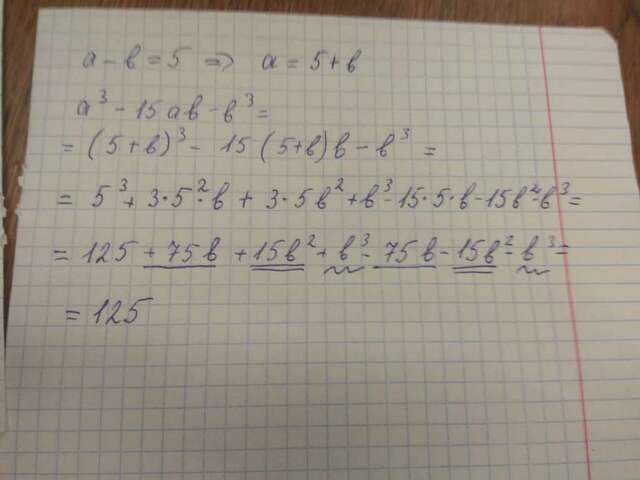 a - b = 5 => a = 5 + b
a³ - 15ab - b³ =
= (5+b)³ - 15(5+b)b - b³ =
= 5³ + 3·5²·b + 3·5b² + b³ - 15·5·b - 15b² - b³ =
= 125 + 75b + 15b² + b³ - 75b - 15b² - b³ =
= 125